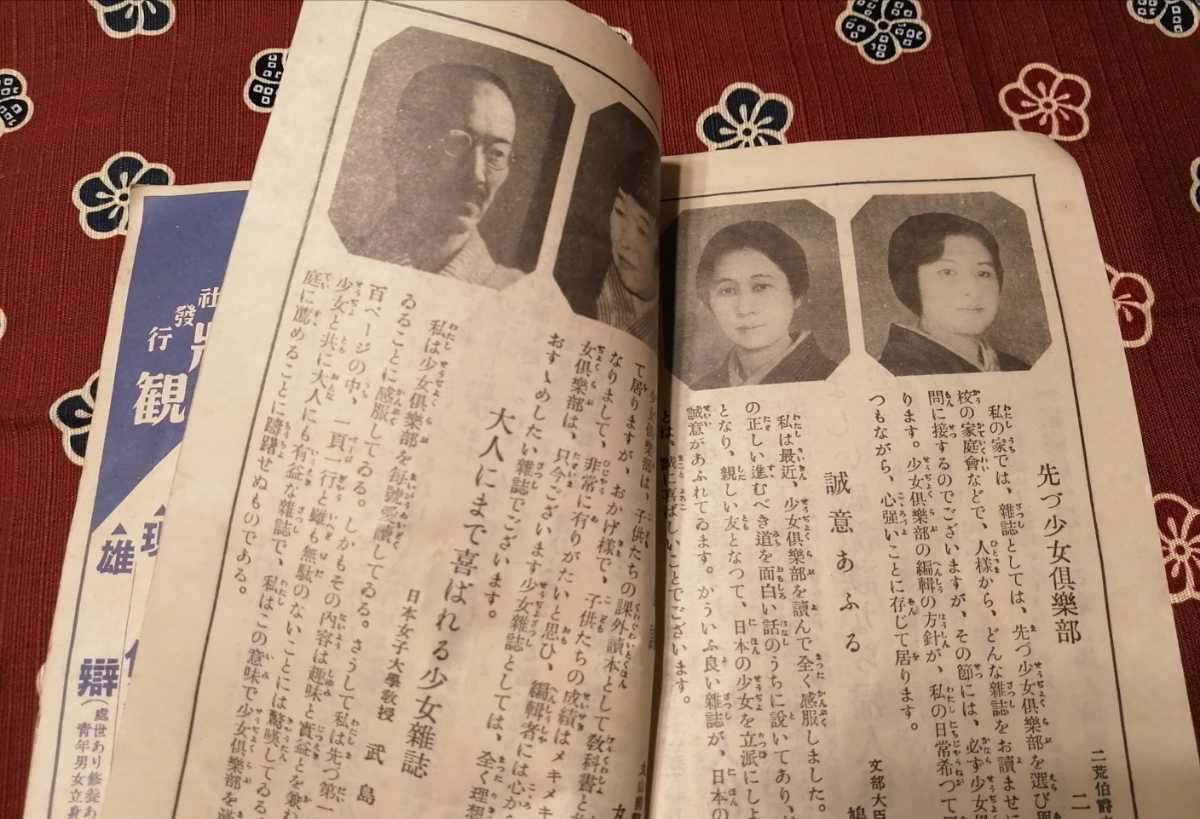 先づ少女俱樂部
二荒伯爵
二
私の家では、雜誌としては、先づ少女俱樂部を選び
校の家庭會などで、人樣から、どんな雜誌をお讀ませに
問に接するのでございますが、その節には、必ず少女俱
ります。少女俱樂部の編輯の方針が、私の日常希つて
つもながら、心强いことに存じて居ります。
誠意あふる
文部大臣
鳩
私は最近、少女俱樂部を讀んで全く感服しました。
の正しい進むべき道を面白い話のうちに說いてあり、
となり、親しい友となつて、日本の少女を立派にしよ
誠意があふれてゐます。かういふ良い雜誌が、日本の
とは、誠に喜ばしいことでございます。
少女俱樂部は、子供たちの課外讀本として敎科書と
て居りますが、おかげ樣で、子供たちの成績はメキメキ
なりまして、非常に有りがたいと思ひ、編輯者には心か
女俱樂部は、只今ございます少女雜誌としては、全く理想
おすゝめしたい雜誌でございます。
大人にまで喜ばれる少女雜誌
日本女子大學敎授 武島
私は少女俱樂部を每號愛讀してゐる。さうして私は先づ第一
ゐることに感服してゐる。しかもその內容は趣味と實益とを兼
百ページの中、一頁一行と雖も無駄のないことには驚嘆してゐる
少女と共に大人にも有益な雜誌で、私はこの意味で少女俱樂部を
庭に薦めることに躊躇せぬものである。
社發行
觀
雄
辯
處世あり修養あ
靑年男女立身